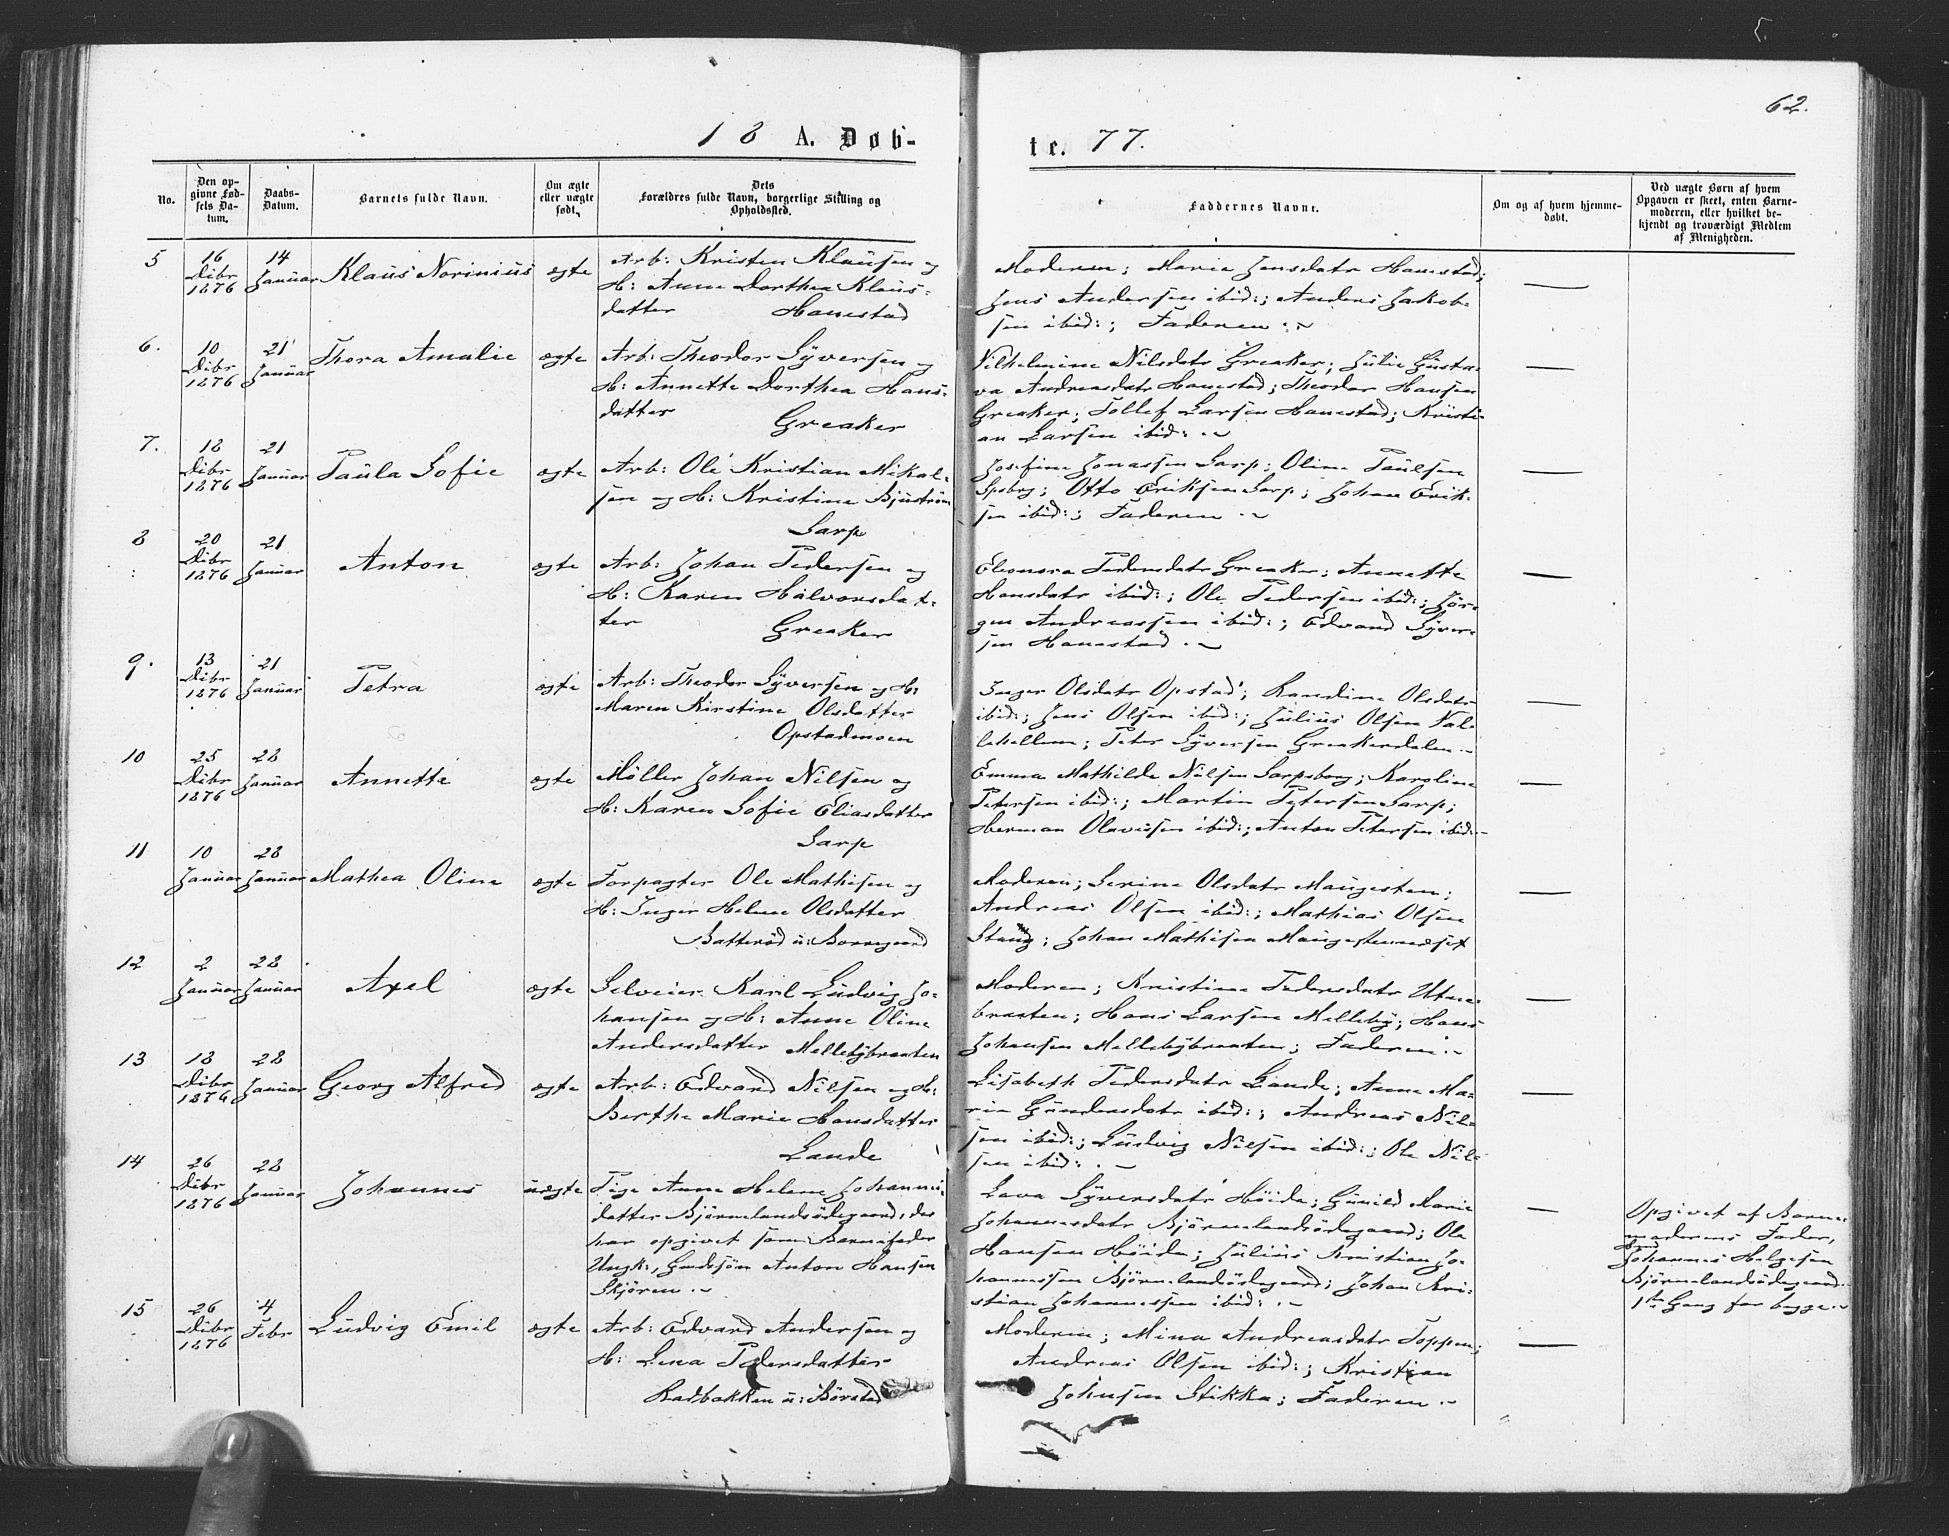 62.
18 A. Døb-
te. 77.
No.
Den op-
givne Fød-
sels Da-
tum.
Daabs-
Datum.
Barnets fulde Navn.
Om ægte
eller uægte
født.
Dets
Forældres fulde Navn, borgerlige Stilling og
Opholdssted.
Faddernes Navne.
Om og af hvem hjemme-
døbt.
Ved uægte Børn af hvem
Opgaven er skeet, enten Barne-
moderen, eller hvilket be-
kjendt og troværdigt Medlem
af Menigheden.
5
16
Dibr
1876
14
Januar
Klaus Norinius
ægte
Arb: Kristen Klausen og
H: Anne Dorthea Klaus-
datter Hanestad
Moderen; Marie Jensdatr Hanestad;
Jens Andersen ibid:; Anders Jakob-
sen ibid:; Faderen
6.
10
Dibr
1876
21
Januar
Thora Amalie
ægte
Arb: Theodor Syversen og
H: Annette Dorthea Hans-
datter
Greaker
Vilhelmine Nilsdatr Greaker; Julie Gusta-
va Andreasdatr Hanestad; Theodor Hansen
Greaker; Tollef Larsen Hanestad; Kristi-
an Larsen ibid:
7.
18
Dibr
1876
21
Januar
Paula Sofie
ægte
Arb: Ole Kristian Mikal-
sen og H: Kristine Bjuström
Sarp
Josefine Jonassen Sarp; Oline Paulsen
Spsborg; Otto Eriksen Sarp; Johan Erik-
sen ibid:; Faderen
8
20
Dibr
1876
21
Januar
Anton
ægte
Arb: Johan Pedersen og
H: Karen Halvorsdat-
ter
Greaker
Eleonora Pedersdatr Greaker; Annette
Hansdatr ibid:; Ole Pedersen ibid:; Jør-
gen Andreassen ibid:; Edvard Syver-
sen Hanestad
9.
13
Dibr
1876
21
Januar
Petra
ægte
Arb: Theodor Syversen og H:
Maren Kirstine Olsdatter
Opstadmoen
Inger Olsdatr Opstad; Randine Olsdatr
ibid:; Jens Olsen ibid:; Julius Olsen Val-
lehellene; Peter Syversen Greakerdalen
10
25
Dibr
1876
28
Januar
Annette
ægte
Møller Johan Nilsen og
H: Karen Sofie Eliasdatter
Sarp
Emma Mathilde Nilsen Sarpsborg; Karoline
Petersen ibid:; Martin Petersen Sarp;
Herman Olavesen ibid:; Anton Petersen ibid:
11
10
Januar
28
Januar
Mathea Oline
ægte
Forpagter Ole Mathisen og
H: Inger Helene Olsdatter
Batterød u: Borregaard
Moderen; Serine Olsdatr Maugesten;
Andreas Olsen ibid:; Mathias Olsen
Stang; Johan Mathisen Maugestennæset
12
2
Januar
28
Januar
Axel
ægte
Selveier Karl Ludvig Jo-
hansen og H: Anne Oline
Andersdatter Mellebybraaten
Moderen; Kristine Pedersdatr Utne-
braaten; Hans Larsen Melleby; Hans
Johansen Mellebybraaten; Faderen
13
18
Dibr
1876
28
Januar
Georg Alfred
ægte
Arb: Edvard Nilsen og H:
Berthe Marie Hansdatter
Lande
Lisabeth Pedersdatr Lande; Anne Ma-
rie Gundersdatr ibid:; Andreas Nil-
sen ibid:; Ludvig Nilsen ibid:; Ole Nil-
sen ibid:
14
26
Dibr
1876
28
Januar
Johannes
uægte
Pige Anne Helene Johannes-
datter Bjørnelandsødegaard, der
har opgivet som Barnefader
Ungk:, Gaardsøn Anton Hansen
Skjøren
Lava Syversdatr Høide; Gunild Marie
Johannesdatr Bjørnelandsødegaard; Ole
Hansen Høide; Julius Kristian Jo-
hannessen Bjørnelandsødegaard; Johan Kri-
stian Johannessen ibid:
Opgivet af Barne-
moderens Fader,
Johannes Helgesen
Bjørnelandsødegaard
1ste Gang for begge
15
26
Dibr
1876
4
Febr
Ludvig Emil
ægte
Arb: Edvard Andersen og
H: Lena Pedersdatter
Radbakken u: Børstad
Moderen; Mina Andreasdatr Toppen;
Andreas Olsen ibid:; Kristian
Johnsen Stikka; Faderen